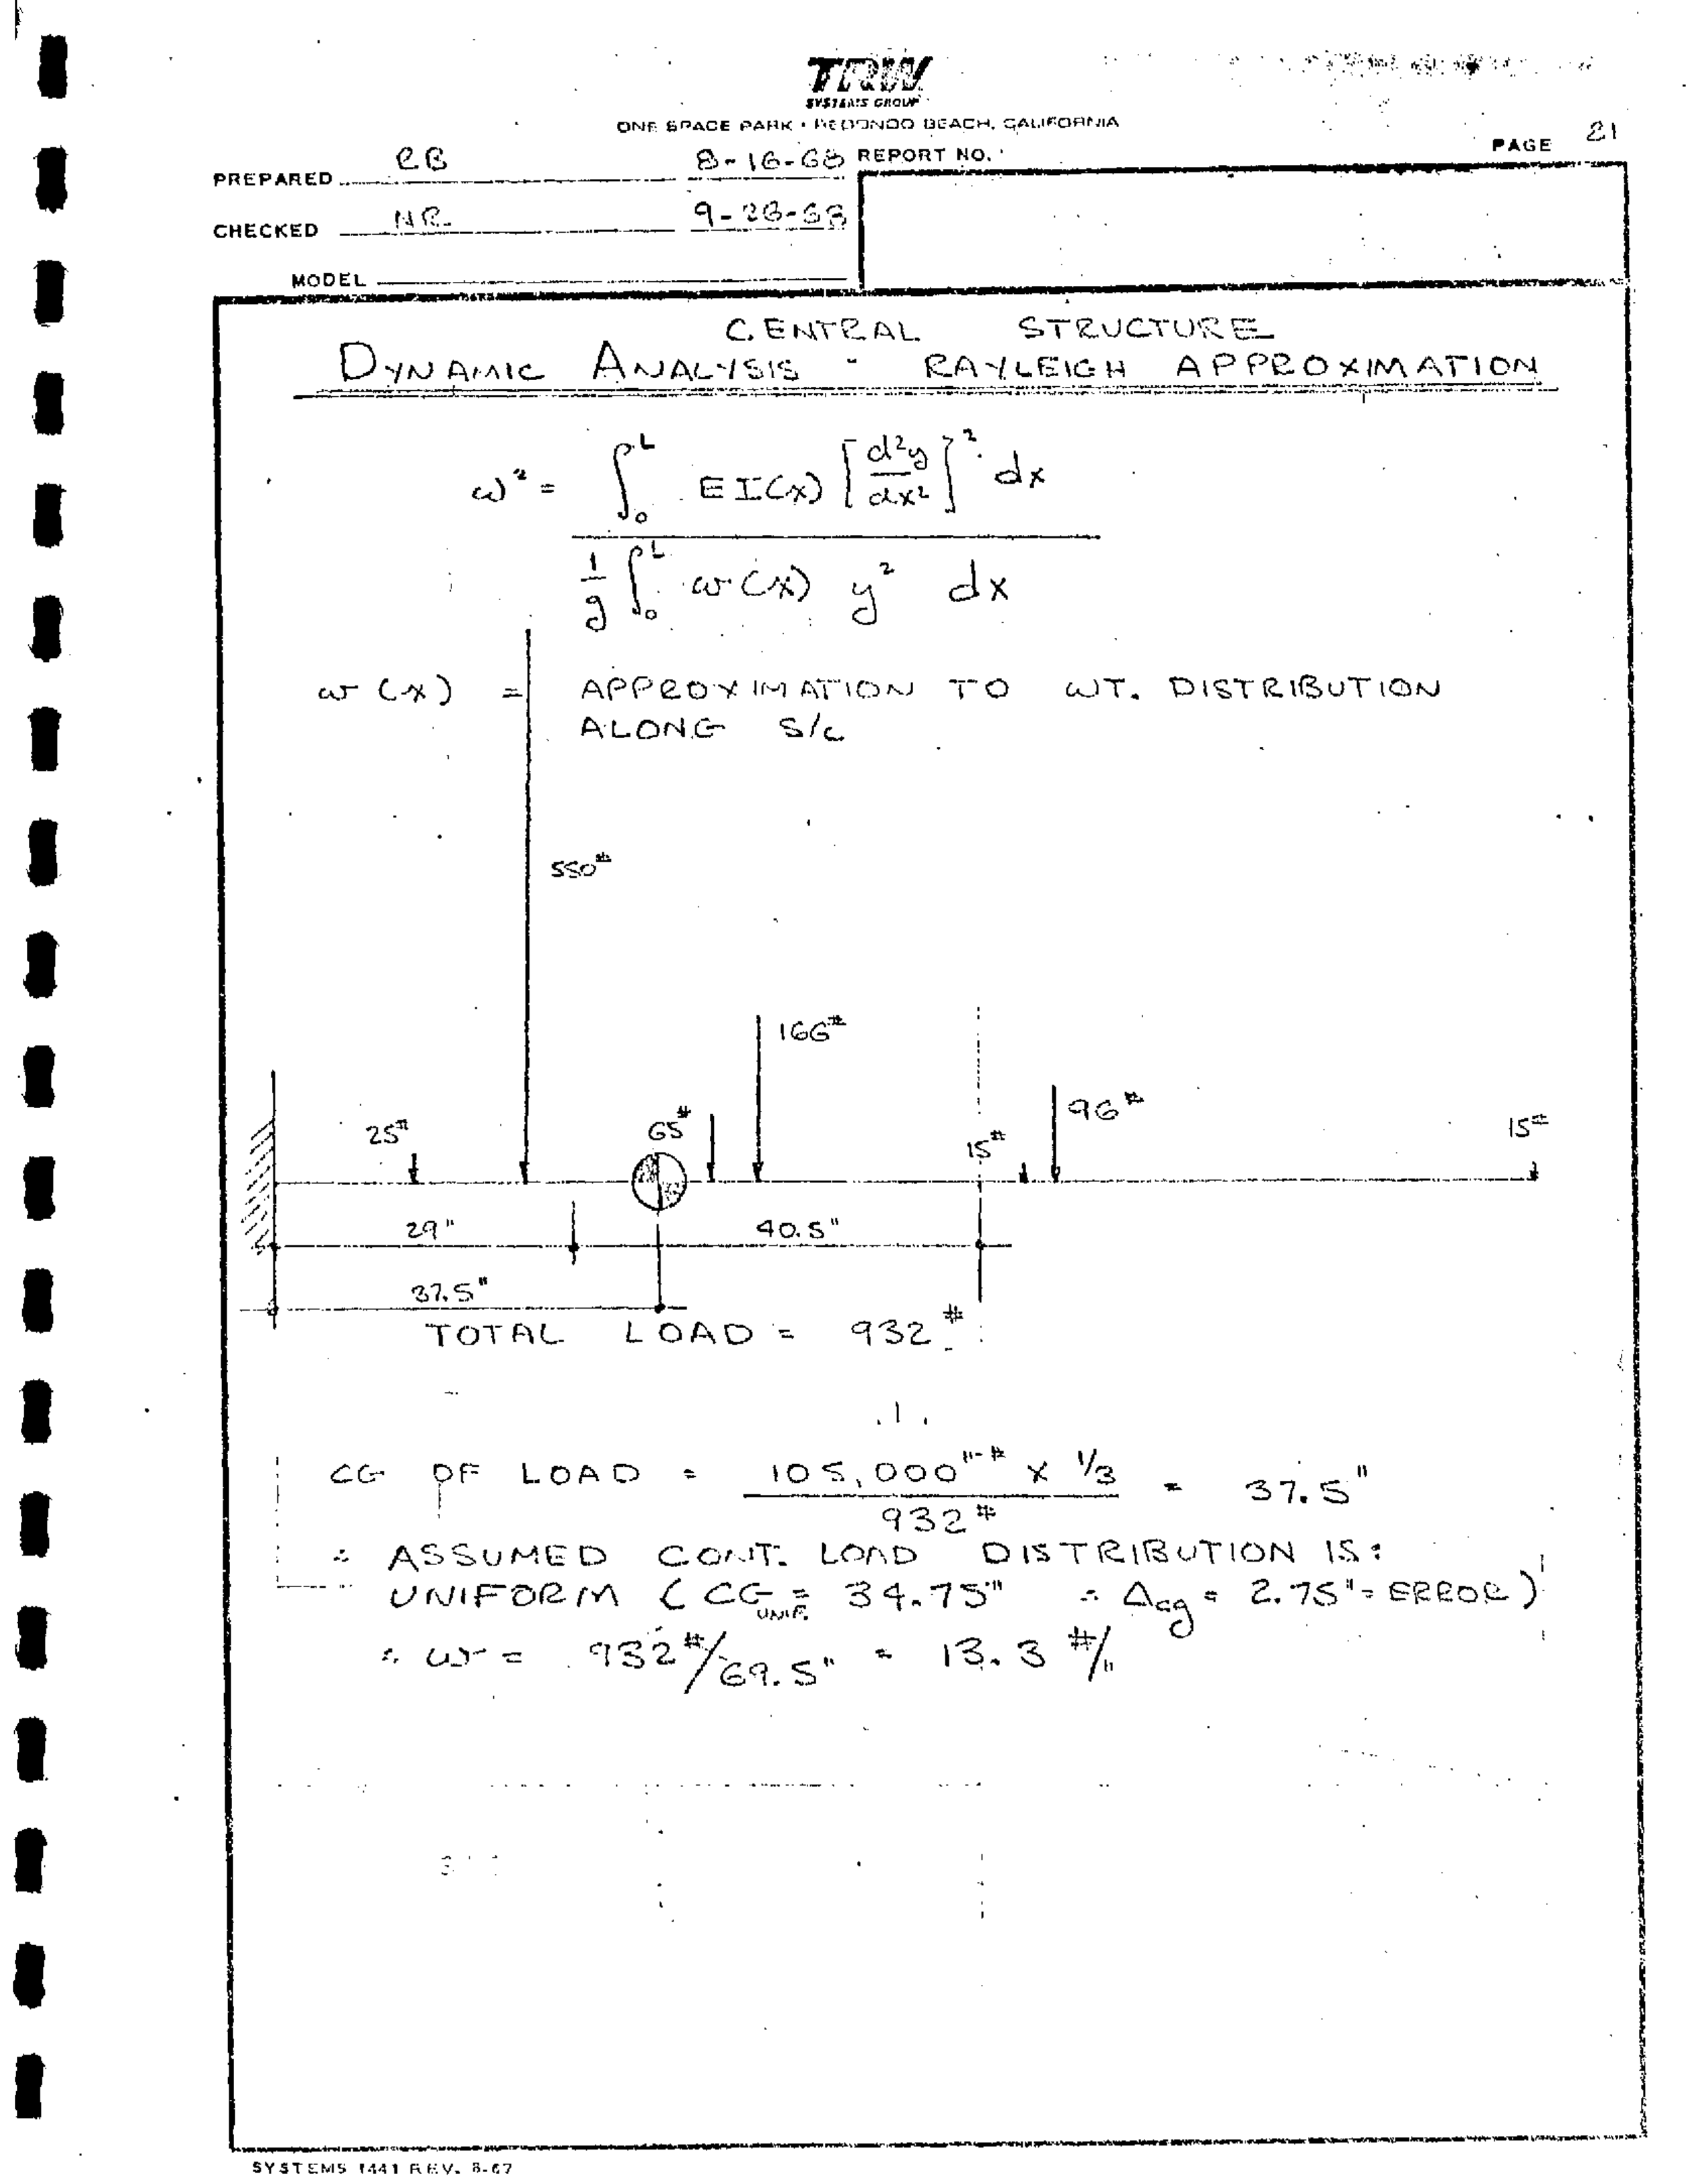 TRW
SYSTEMS GROUP
ONE SPACE PARK • REDONDO BEACH, CALIFORNIA
PAGE 21
PREPARED RB 8-16-68 REPORT NO.
CHECKED NR 9-28-68
MODEL
CENTRAL STRUCTURE
DYNAMIC ANALYSIS - RAYLEIGH APPROXIMATION
ω² = ∫₀ᴸ EI(x) [d²y/dx²]² dx
1/g ∫₀ᴸ w(x) y² dx
w(x) = APPROXIMATION TO WT. DISTRIBUTION
ALONG S/C
550#
166#
96#
25# 65# 15# 15#
29" 40.5"
37.5"
TOTAL LOAD = 932#
CG OF LOAD = 105,000"-# x 1/3 = 37.5"
932#
∴ ASSUMED CONT. LOAD DISTRIBUTION IS:
UNIFORM (CG UNIF. = 34.75" ∴ Δcg = 2.75" = ERROR)
∴ w = 932#/69.5" = 13.3 #/"
SYSTEMS 1441 REV. 8-67